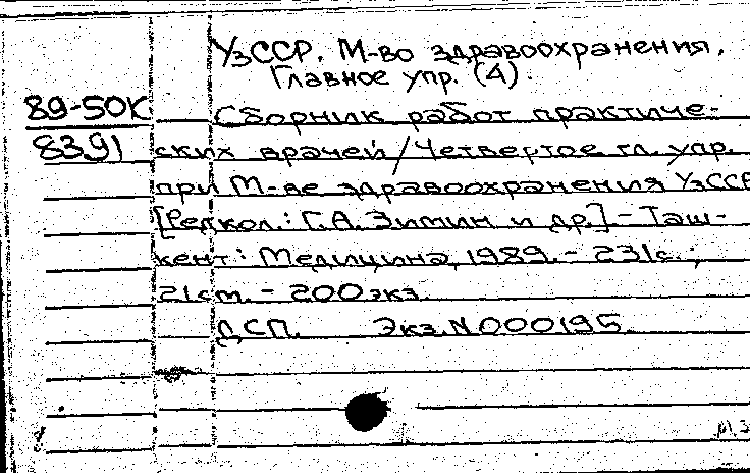 УзССР. М-во здравоохранения.
Главное упр. (4).
89-50К
8391
Сборник работ практиче-
ских врачей / Четвертое гл. упр.
при М-ве здравоохранения УзССР
[Редкол.: Г.А. Зимин и др.] - Таш-
кент: Медицина, 1989. - 231с.;
21см. - 200экз.
ДСП. Экз. N000195